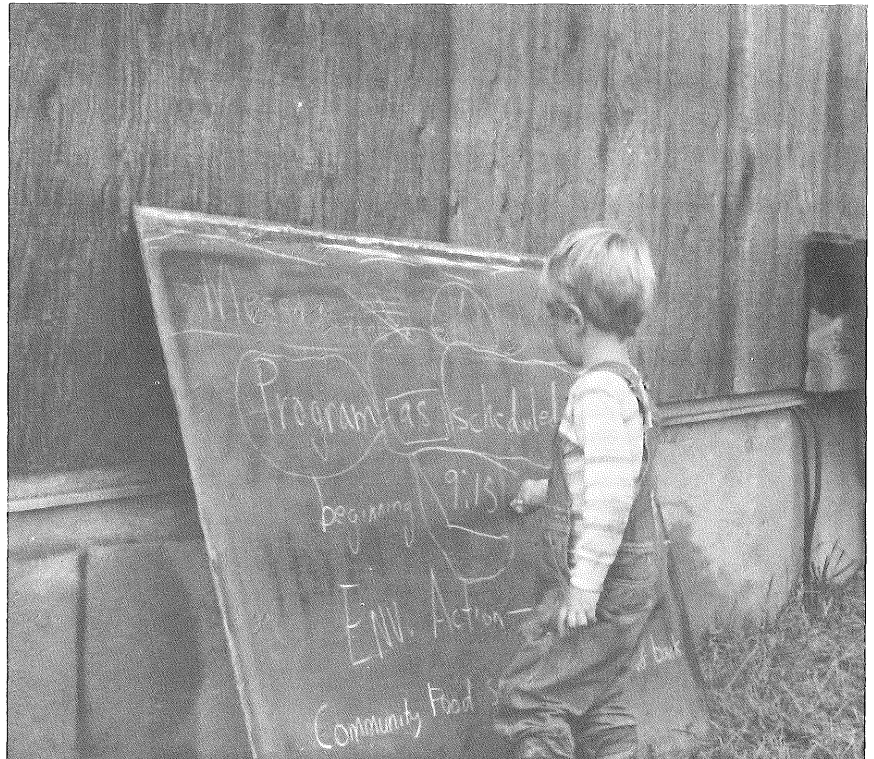 Program as scheduled
beginning 9:15
ENV. ACTION —
Community Food